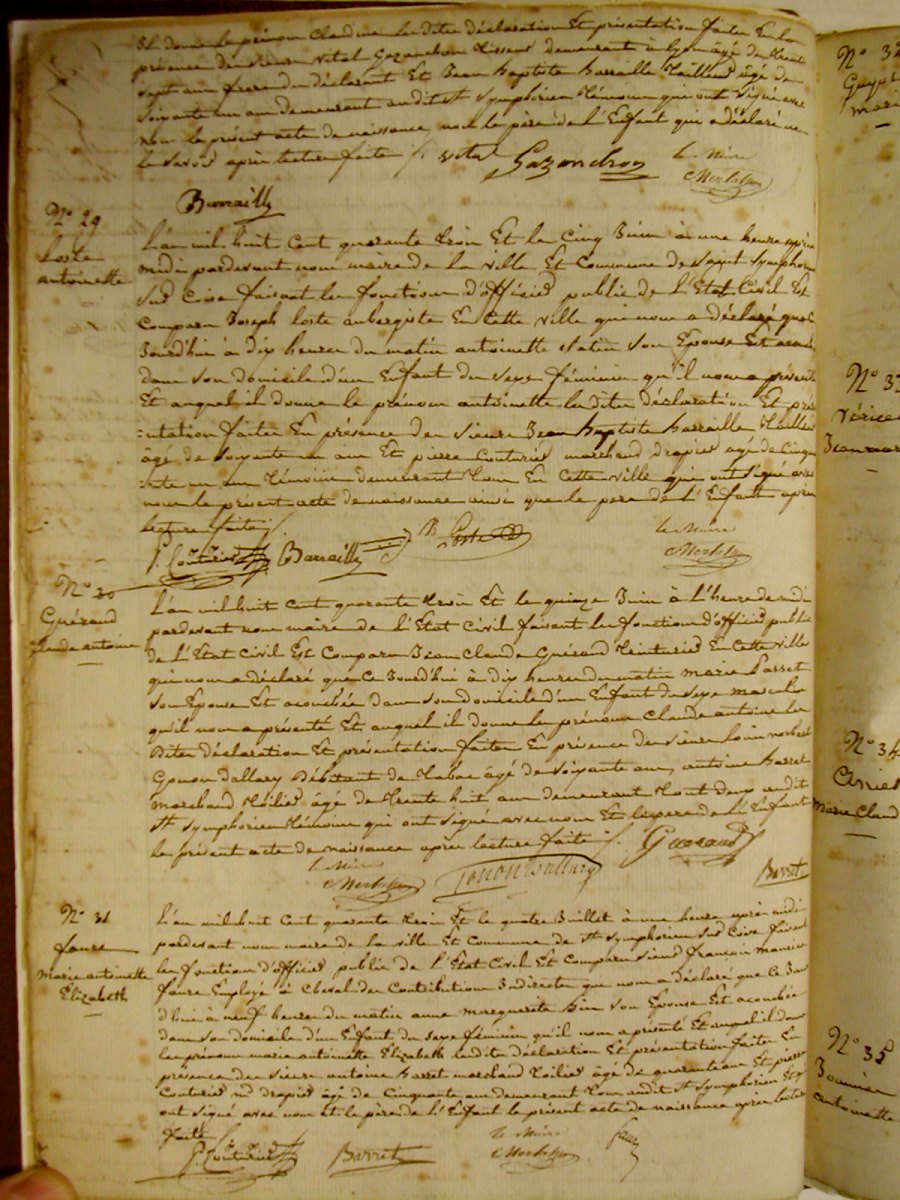 Il donne le prénom Claudine les dites déclaration Et présentation faites En la
présence des sieurs Vital Gazanchon Tisseur demeurant à Lyon âgé de trente
sept ans frere du déclarant Et Jean Baptiste Barraille Tailleur âgé de
soixante un ans demeurant audit St Symphorien témoins qui ont signé avec
nous le présent acte de naissance, non le père de l'Enfant qui a déclaré ne
le savoir après lecture faite vital Gazanchon le Maire
Barrailly
N° 29
Loste
antoinette
L'an mil huit cent quarante trois Et le Cinq Juin à une heure après
midi pardevant nous maire de la ville Et Commune de Saint Symphorien
sur Coise faisant les fonctions d'officier public de l'Etat Civil Est
Comparu Joseph Loste aubergiste En Cette ville qui nous a déclaré que ce
Jourd'hui à dix heures du matin antoinette son Epouse Est
dans son domicile d'un Enfant du sexe féminin qu'il nous a présenté
Et auquel il donne le prénom antoinette les dites déclaration Et pré-
=sentation faites En présence des sieurs Jean Baptiste Barraille Tailleur
âgé de soixante un ans Et pierre Couturier marchand drapier agé de cinqua
nte un ans témoins demeurant tous En Cette ville qui ont signé avec
nous le présent acte de naissance ainsi que le pere de l'Enfant après
lecture faite
P. Couturier Barrailly Loste le Maire
N° 30
Guéraud
Claude antoine
L'an mil huit cent quarante trois Et le quinze Juin à l'heure de midi
pardevant nous maire de l'Etat Civil faisant les fonction d'officier public
de l'Etat Civil Est Comparu Jean Claude Guéraud Teinturier En Cette ville
qui nous a déclaré que Ce Jourd'hui à dix heures du matin marie Barret
son Epouse Est acouchée dans son domicile d'un Enfant du sexe masculin
qu'il nous a présenté Et auquel il donne les prénoms Claude antoine les
dites déclaration Et présentation faites En présence des sieurs Louis norbert
Gonon dallary Débitant de Tabac âgé de soixante ans, antoine Barret
marchand Toilier âgé de trente huit ans demeurant tout deux audit
St Symphorien témoins qui ont signé avec nous Et le pere de l'Enfant
le présent acte de naissance après lecture faite Gueraud
le Maire Gonon Dallary Barret
N° 31
faure
marie antoinette
Elizabeth
L'an mil huit cent quarante trois Et le quatre Juillet à une heure après midi
pardevant nous maire de la ville Et Commune de St Symphorien sur Coise faisant
les fonction d'officier public de l'Etat Civil Est Comparu sieur françois maurice
faure Employé à Cheval des Contributions Indirectes qui nous a déclaré que Ce Jour
d'hui à neuf heures du matin anne marguerite son Epouse Est acouchée
dans son domicile d'un Enfant du sexe féminin qu'il nous a présenté Et auquel il donne
les prénoms marie antoinette Elizabeth les dite déclaration Et présentation faites En
présence des sieurs antoine Barret marchand Toilier âgé de quarante ans Et pierre
Couturier md drapier âgé de Cinquante ans demeurant tous audit St Symphorien
ont signé avec nous et le père de l'Enfant le présent acte de naissance après lecture
faite
P. Couturier Barret le Maire faure
N° 32
N° 33
N° 34
Marie Claud
N° 35
antoinette